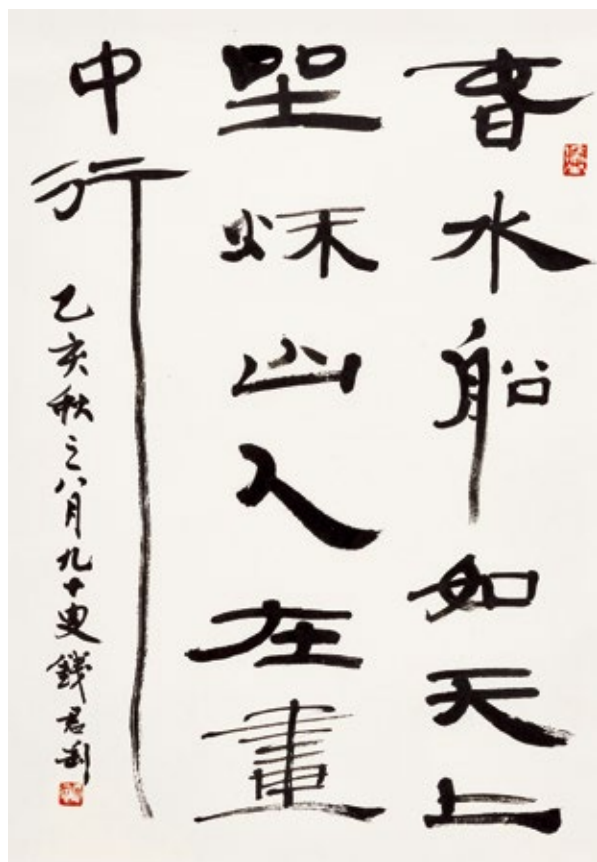 春水船如天上
坐秌山人在畫
中行
乙亥秋之八月九十叟錢君匋